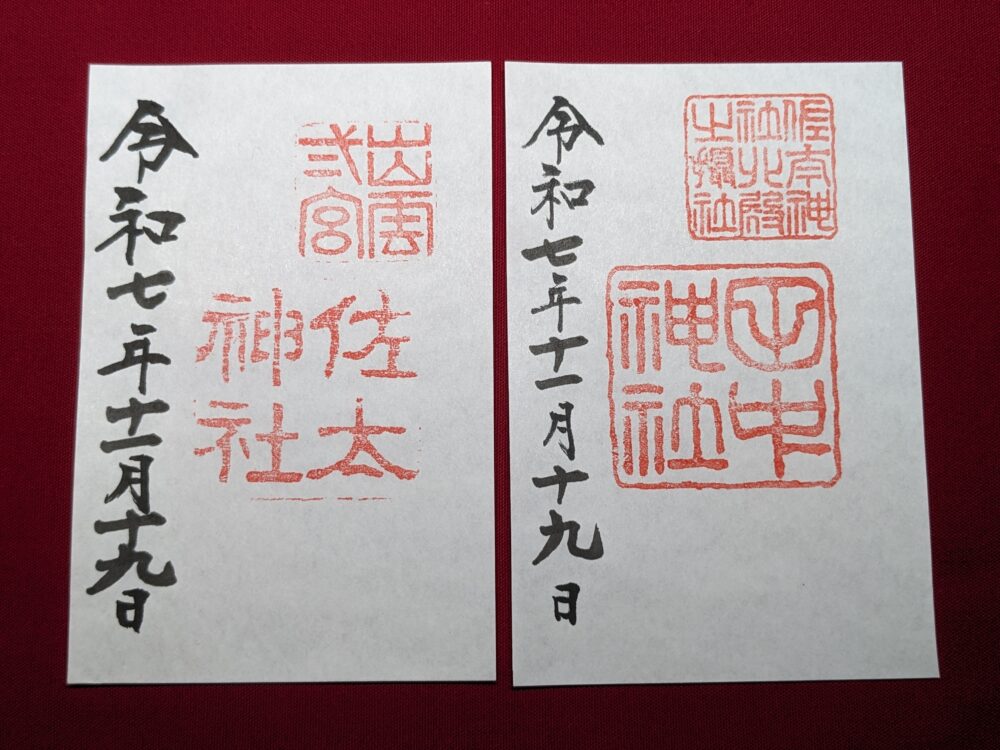 出雲
弍宮
佐太
神社
令和七年十一月十九日
佐太神
社北殿
之攝社
田中
神社
令和七年十一月十九日